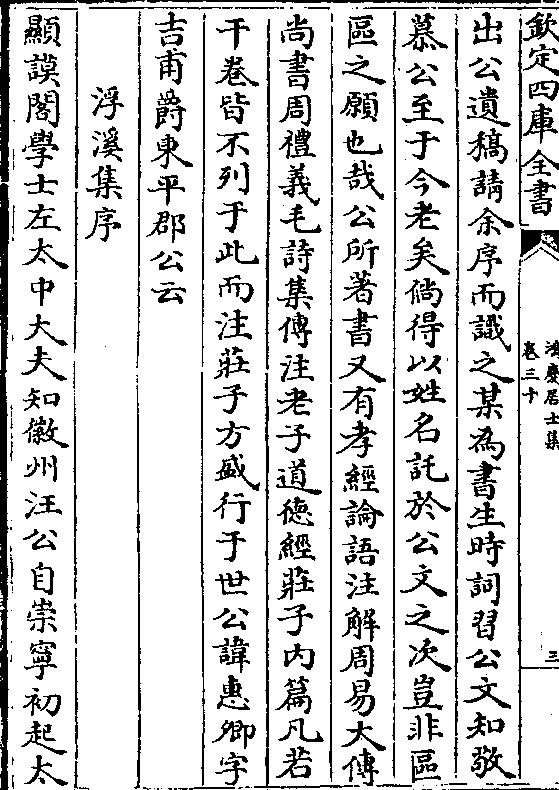 欽定四庫全書
鴻慶居士集
卷三十
三
出公遺稿請余序而識之某為書生時詞習公文知敬
慕公至于今老矣倘得以姓名託於公文之次豈非區
區之願也哉公所著書又有孝經論語注解周易大傳
尚書周禮義毛詩集傳注老子道德經莊子内篇凡若
干卷皆不列于此而注莊子方盛行于世公諱惠卿字
吉甫爵東平郡公云
浮溪集序
顯謨閣學士左太中大夫知徽州汪公自崇寧初起太